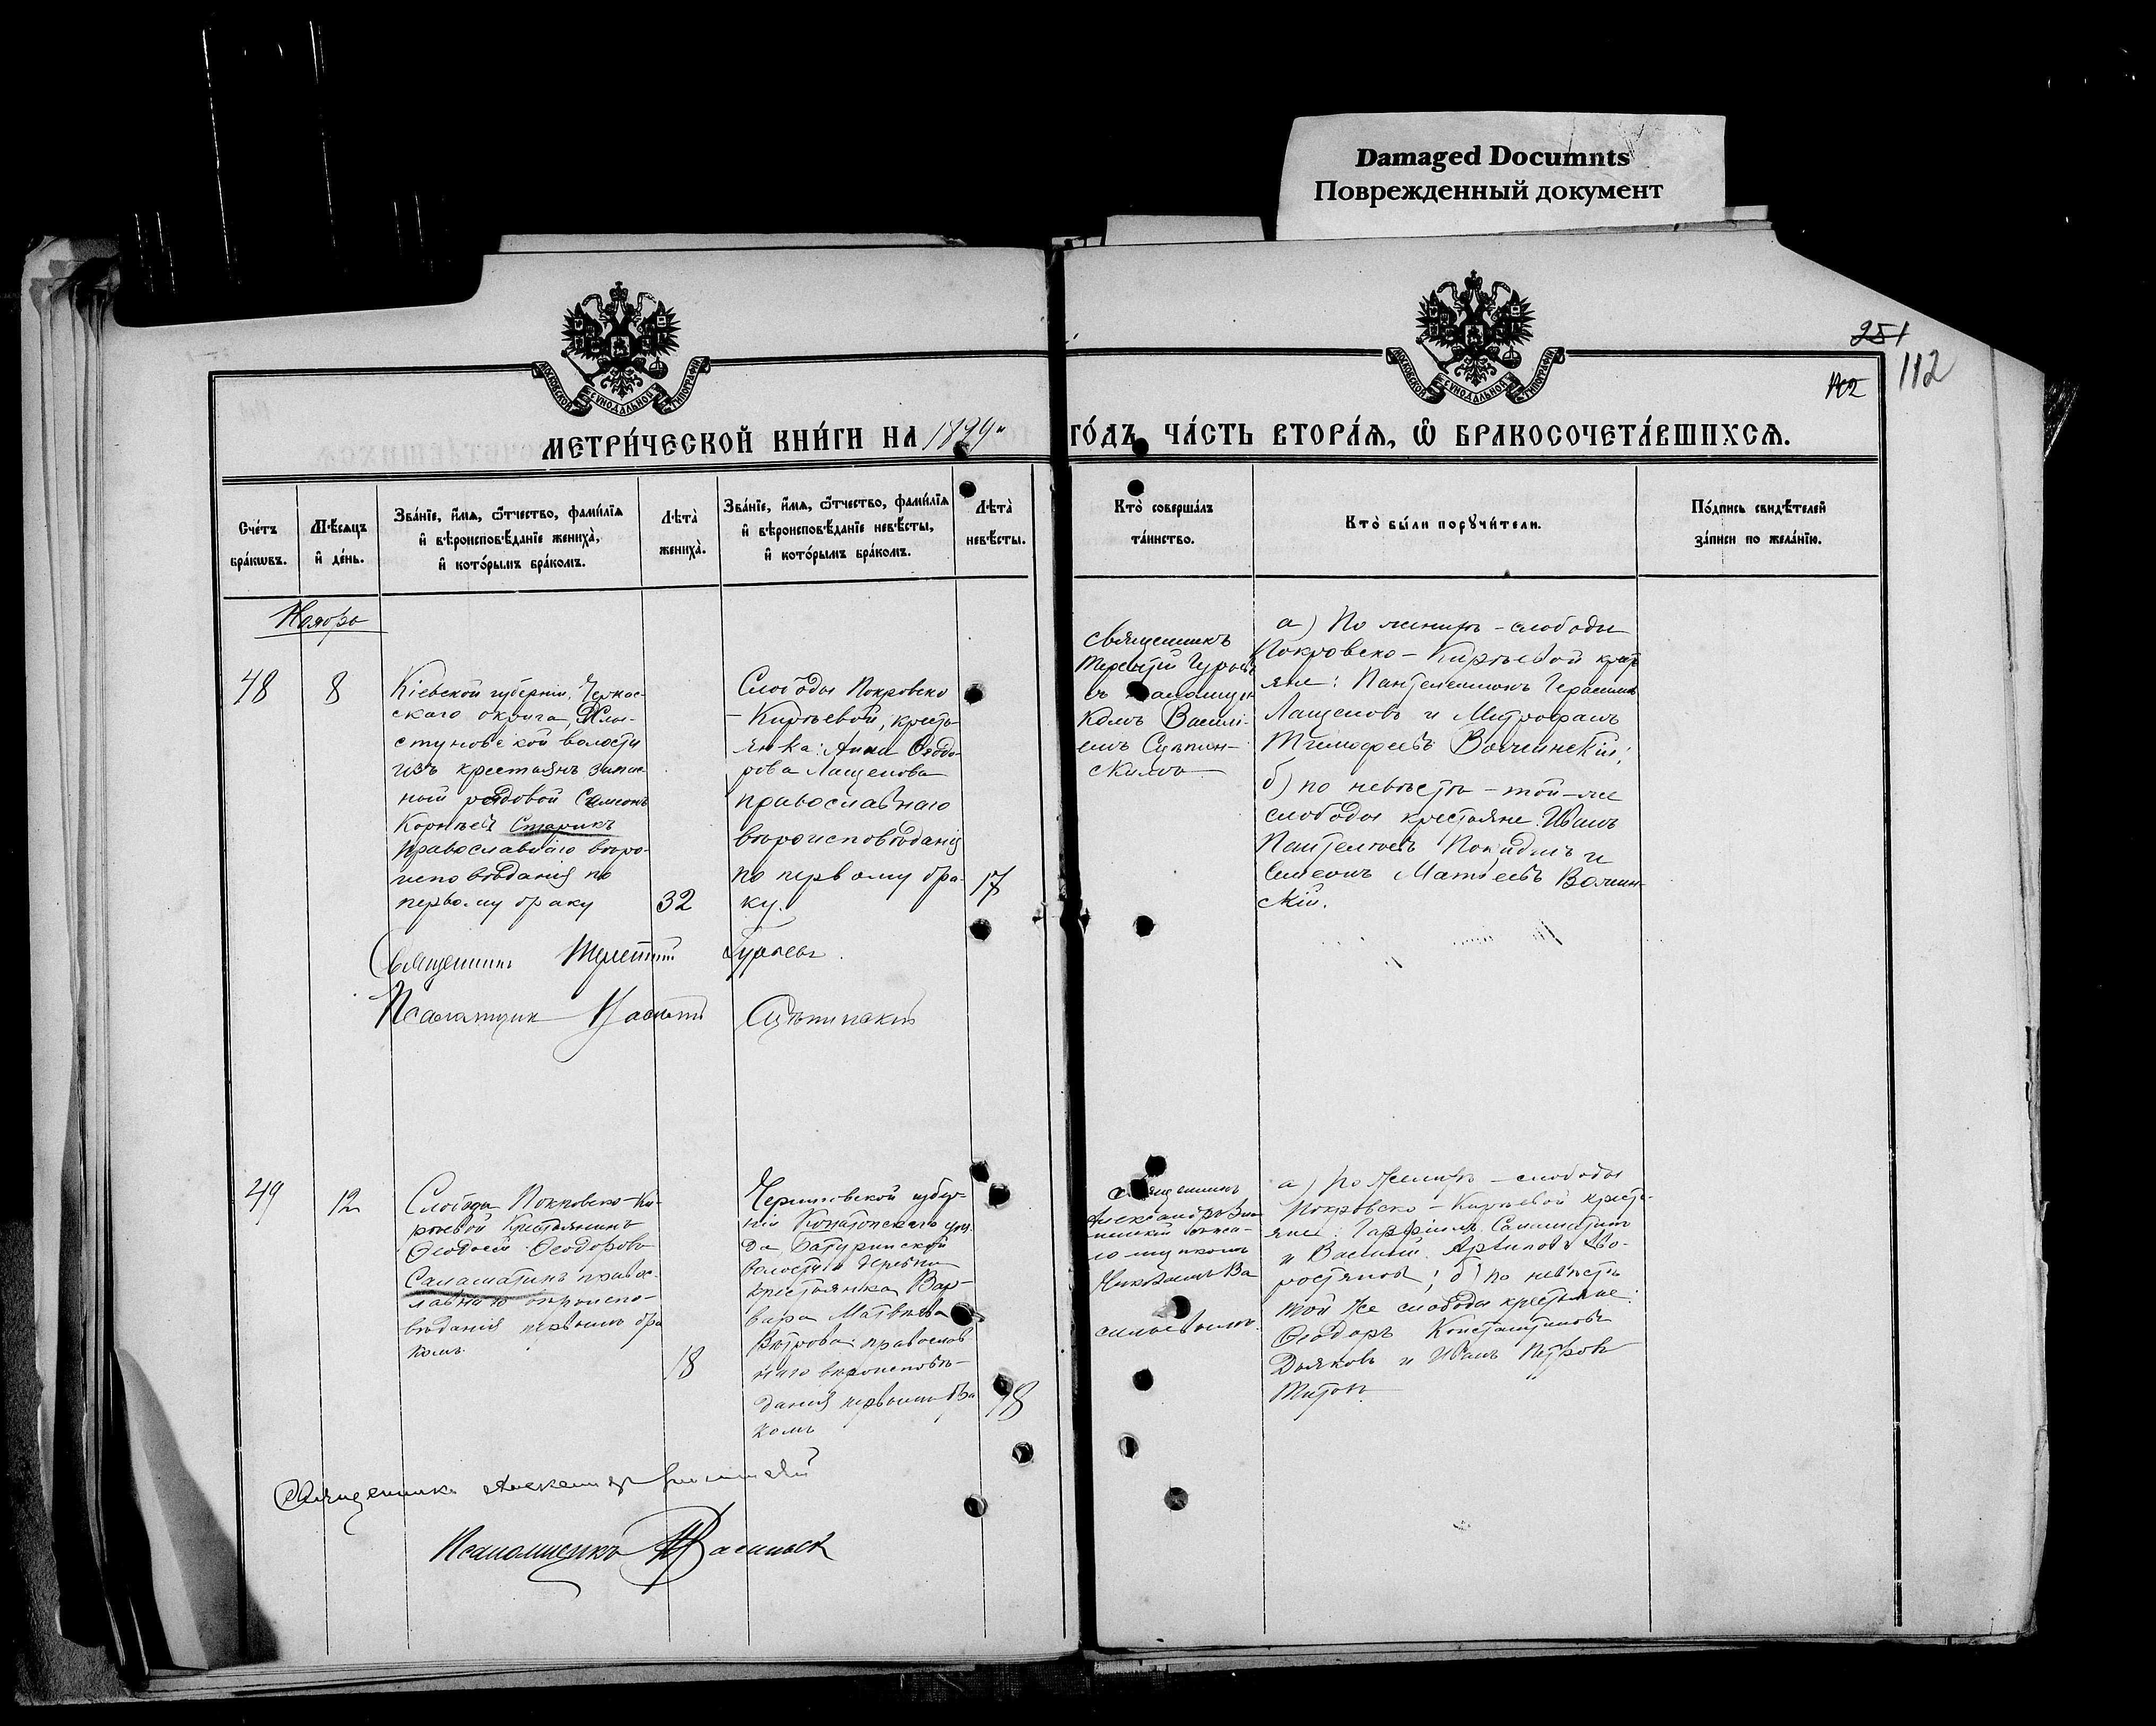 Damaged Documnts
Поврежденный документ
МОСКОВСКОЙ СѴНОДАЛЬНОЙ ТИПОГРАФІИ
МОСКОВСКОЙ СѴНОДАЛЬНОЙ ТИПОГРАФІИ
251
112
МЕТРИ́ЧЕСКОЙ КНИ́ГИ НА 1899 ГО́ДЪ, ЧА́СТЬ ВТОРА́Ѧ, Ѡ҆ БРАКОСОЧЕТА́ВШИХСѦ.
Сче́тъ бра́кѡвъ.
Мѣ́сѧцъ и҆ де́нь.
Зва́нїе, и҆́мѧ, ѻ҆́тчество, фами́лїѧ и҆ вѣроисповѣ́данїе жениха̀, и҆ кото́рымъ бра́комъ.
Лѣта̀ жениха̀.
Зва́нїе, и҆́мѧ, ѻ҆́тчество, фами́лїѧ и҆ вѣроисповѣ́данїе невѣ́сты, и҆ кото́рымъ бра́комъ.
Лѣта̀ невѣ́сты.
Кто̀ соверша́лъ та́инство.
Кто̀ бы́ли порꙋчи́тели.
По́дпись свидѣ́телей за́писи по жела́нїю.
Ноябрь
48
8
Кіевской губерніи, Черкас-
скаго округа,
стуновской волости
изъ крестьянъ запас-
ный рядовой Симеонъ
Корнѣевъ Старикъ
православнаго вѣро-
исповѣданія по
первому браку
32
Слободы Покровско
-Кирѣевой, кресть
янка: Анна Ѳеодо-
рова Лащенова
православнаго
вѣроисповѣданія
по первому бра-
ку.
17
Священникъ
Терентій Гурьевъ
съ псаломщи
комъ Василі-
емъ Сцѣпин-
скимъ
а) По жениху - слободы
Покровско-Кирѣевой крестъ
яне: Пантелеимонъ Герасимовъ
Лащеновъ и Митрофанъ
Тимофеевъ Волчинскій;
б) по невѣстѣ - той-же
слободы крестьяне Иванъ
Пантелѣевъ и
Симеонъ Матвеевъ Волчин-
скій.
Священникъ Терентій Гурьевъ.
Псаломщик Сцѣпинскій
49
12
Слободы Покровско-Ки-
рѣевой Крестьянинъ
Ѳеодосій Ѳеодоровъ
Саламатинъ правос-
лавнаго вѣроиспо-
вѣданія первымъ бра
комъ
18
Черниговской губер-
ніи Конотопскаго уѣз.
да, Батуринской
волости и деревни
крестьянка Вар-
вара Матвѣева
Вѣтрова православ
наго вѣроисповѣ-
данія первымъ бра
комъ
18
Священникъ
Александръ
съ псаломщикомъ
Николаемъ Ва
сильевымъ.
а) по Жениху - слободы
Покровско-Кирѣевой кресть-
яне: Гавріилъ Саламатинъ
и Василій Архиповъ Хво-
ростяновъ; б) по невѣстѣ
той же слободы крестьяне:
Ѳеодоръ Константиновъ
Дьяковъ и Иванъ Петровъ
Титовъ.
Священникъ Александръ
Псаломщикъ Н Васильевъ